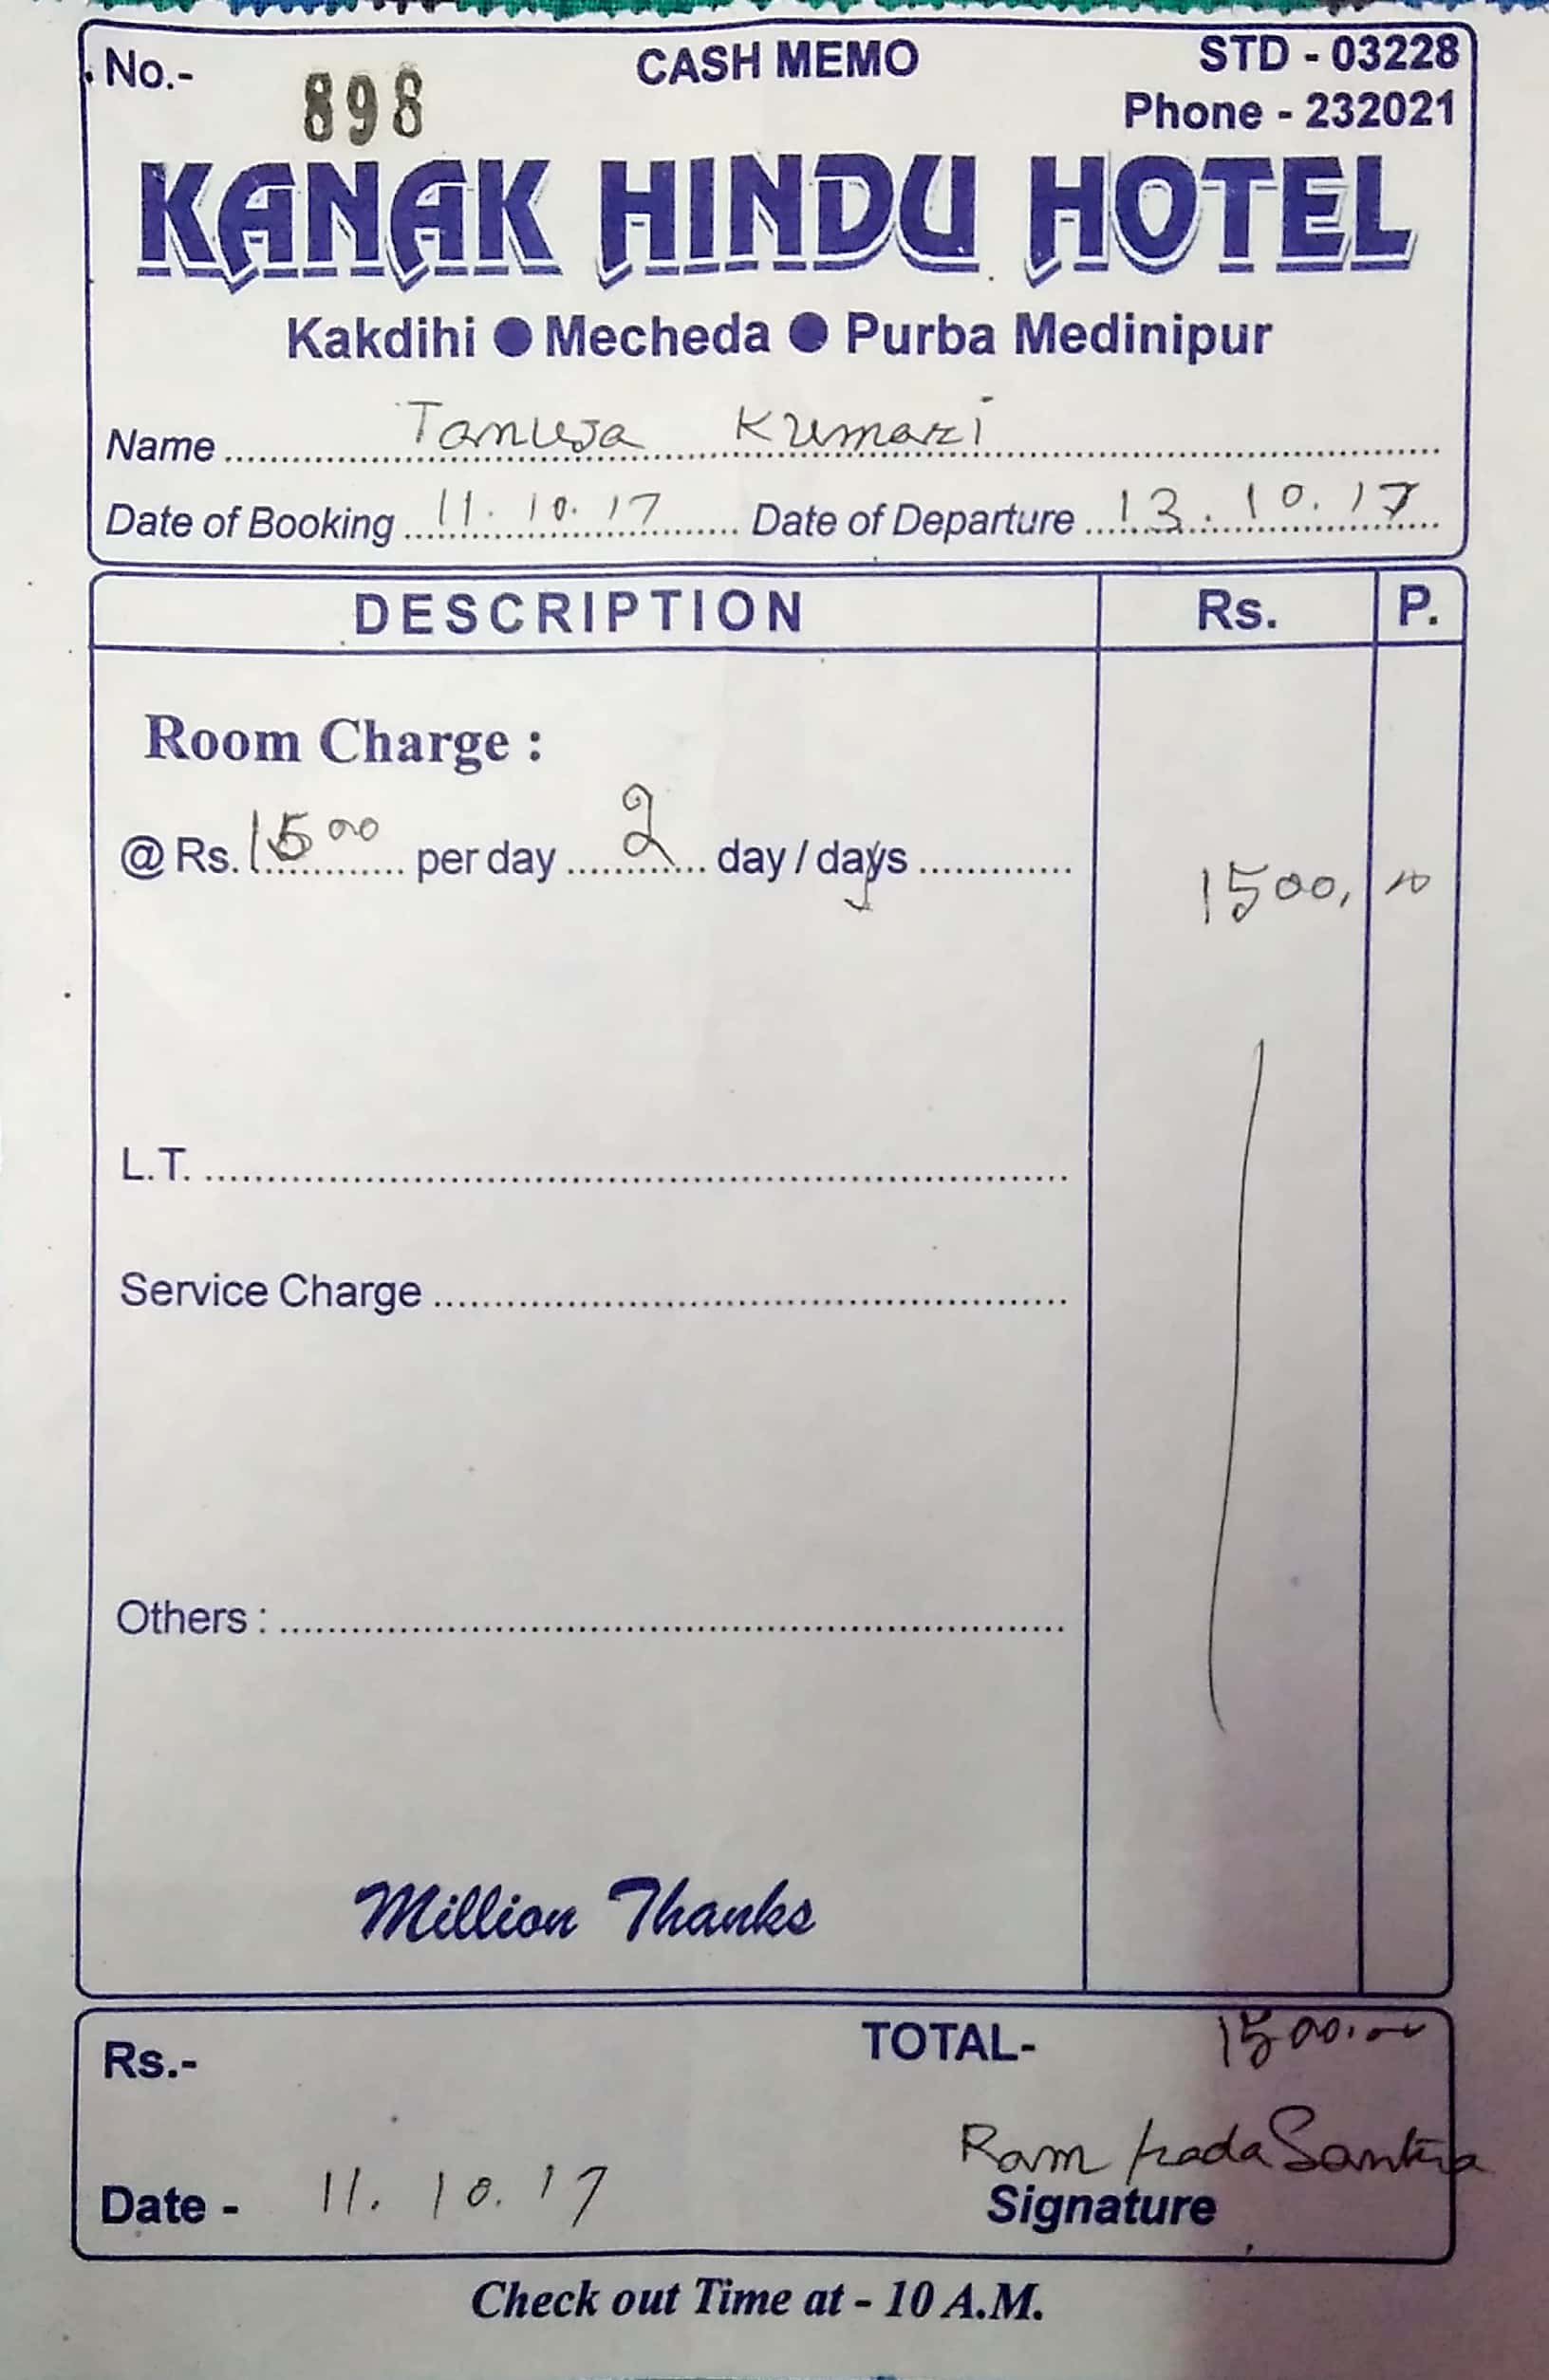 No.- 898 CASH MEMO STD - 03228
Phone - 232021
KANAK HINDU HOTEL
Kakdihi ● Mecheda ● Purba Medinipur
Name Tanuja Kumari
Date of Booking 11.10.17 Date of Departure 13.10.17
DESCRIPTION Rs. P.
Room Charge :
@ Rs. 1500 per day 2 day / days 1500, 00
L.T.
Service Charge
Others :
Million Thanks
Rs.- TOTAL- 1500.00
Ram pada Santra
Date - 11.10.17 Signature
Check out Time at - 10 A.M.